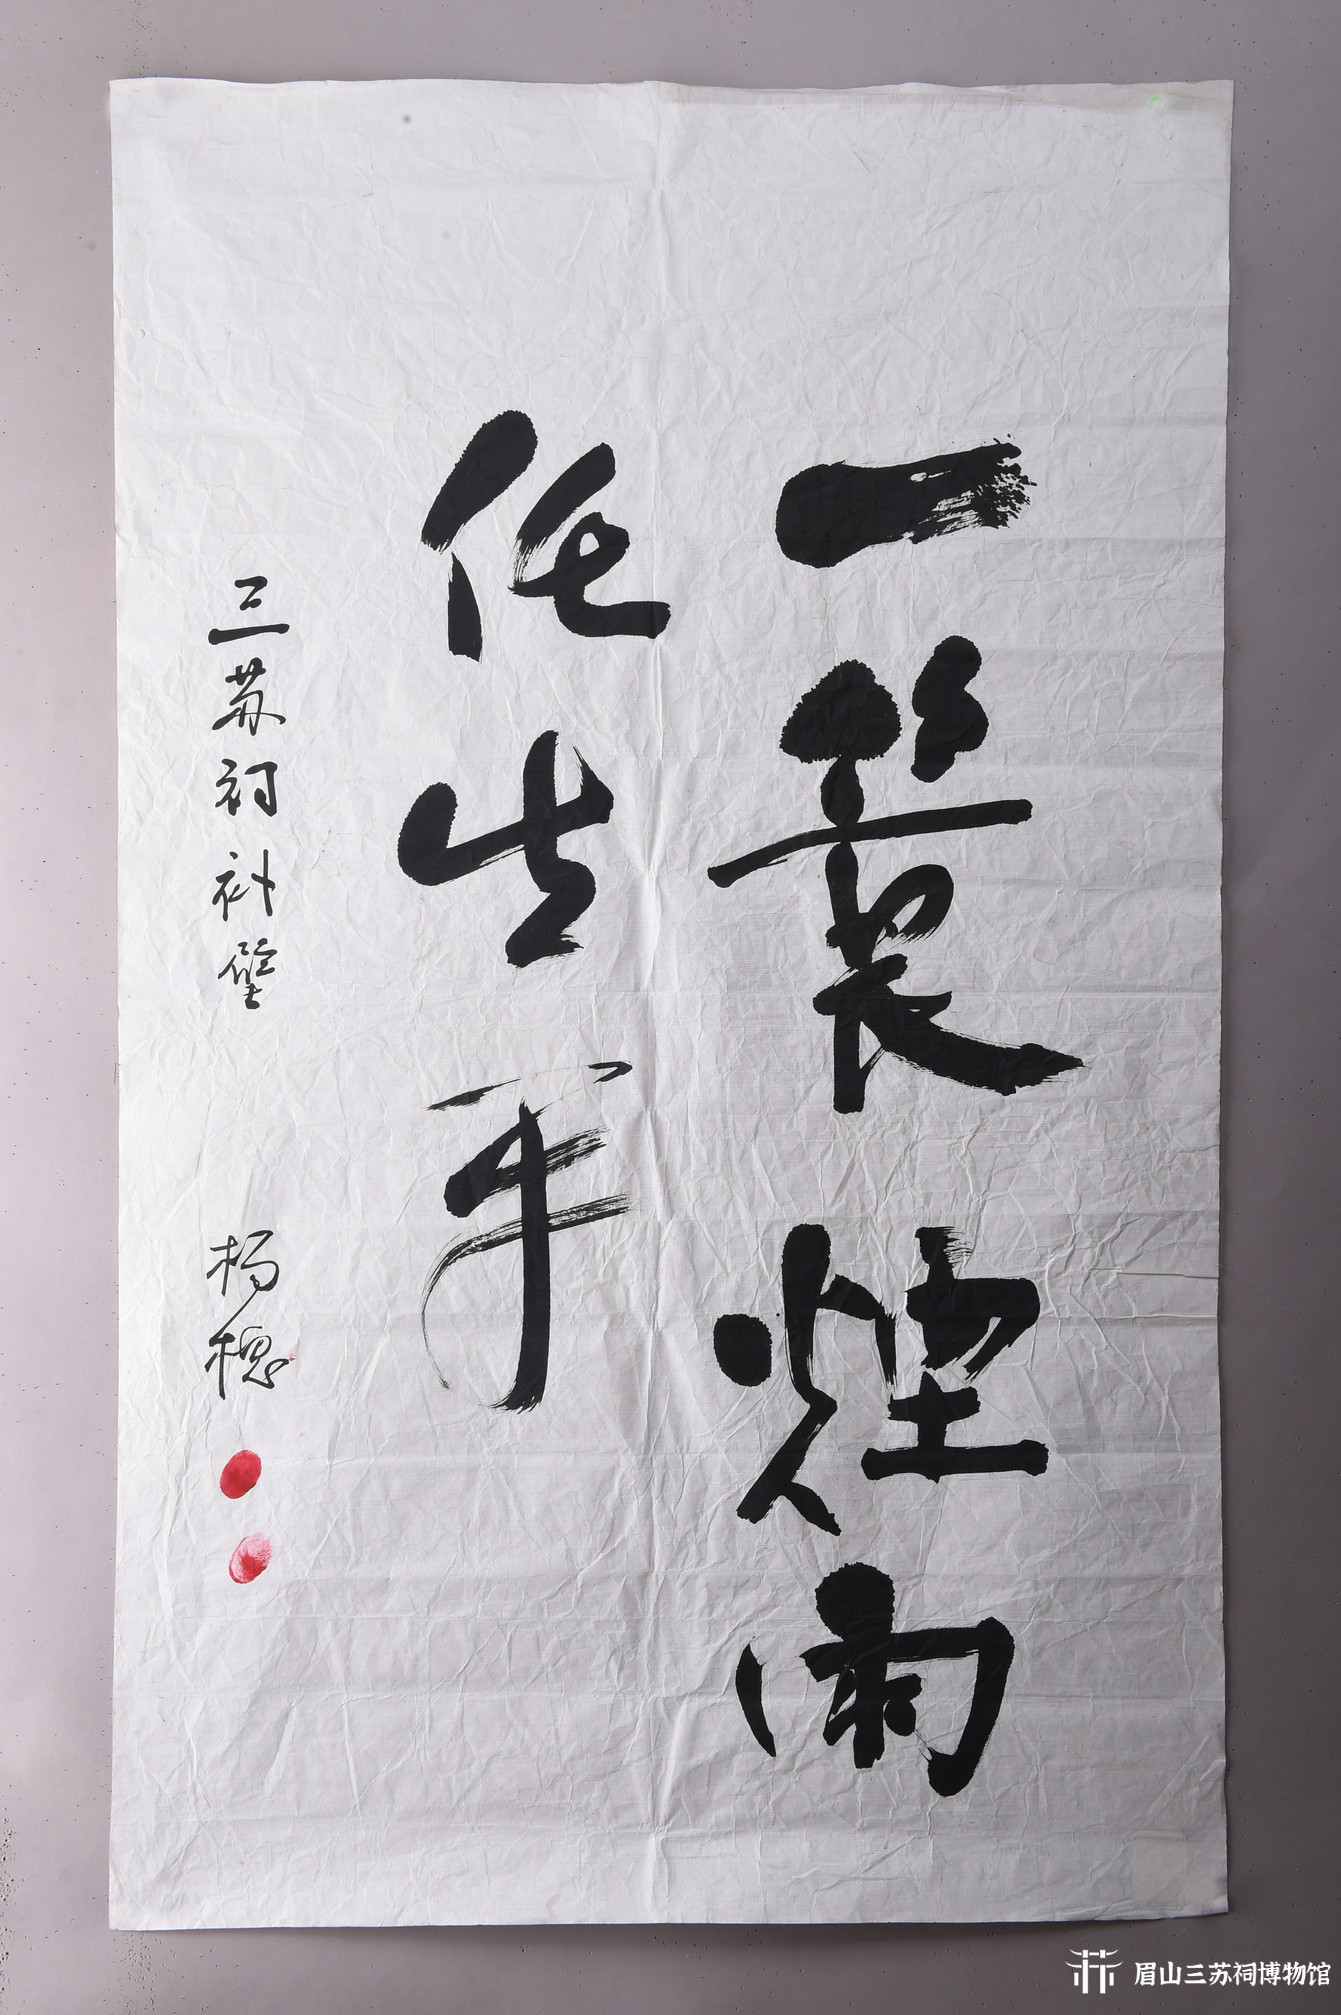 一蓑煙雨
任生平
三苏祠补壁
杨槐
眉山三苏祠博物馆